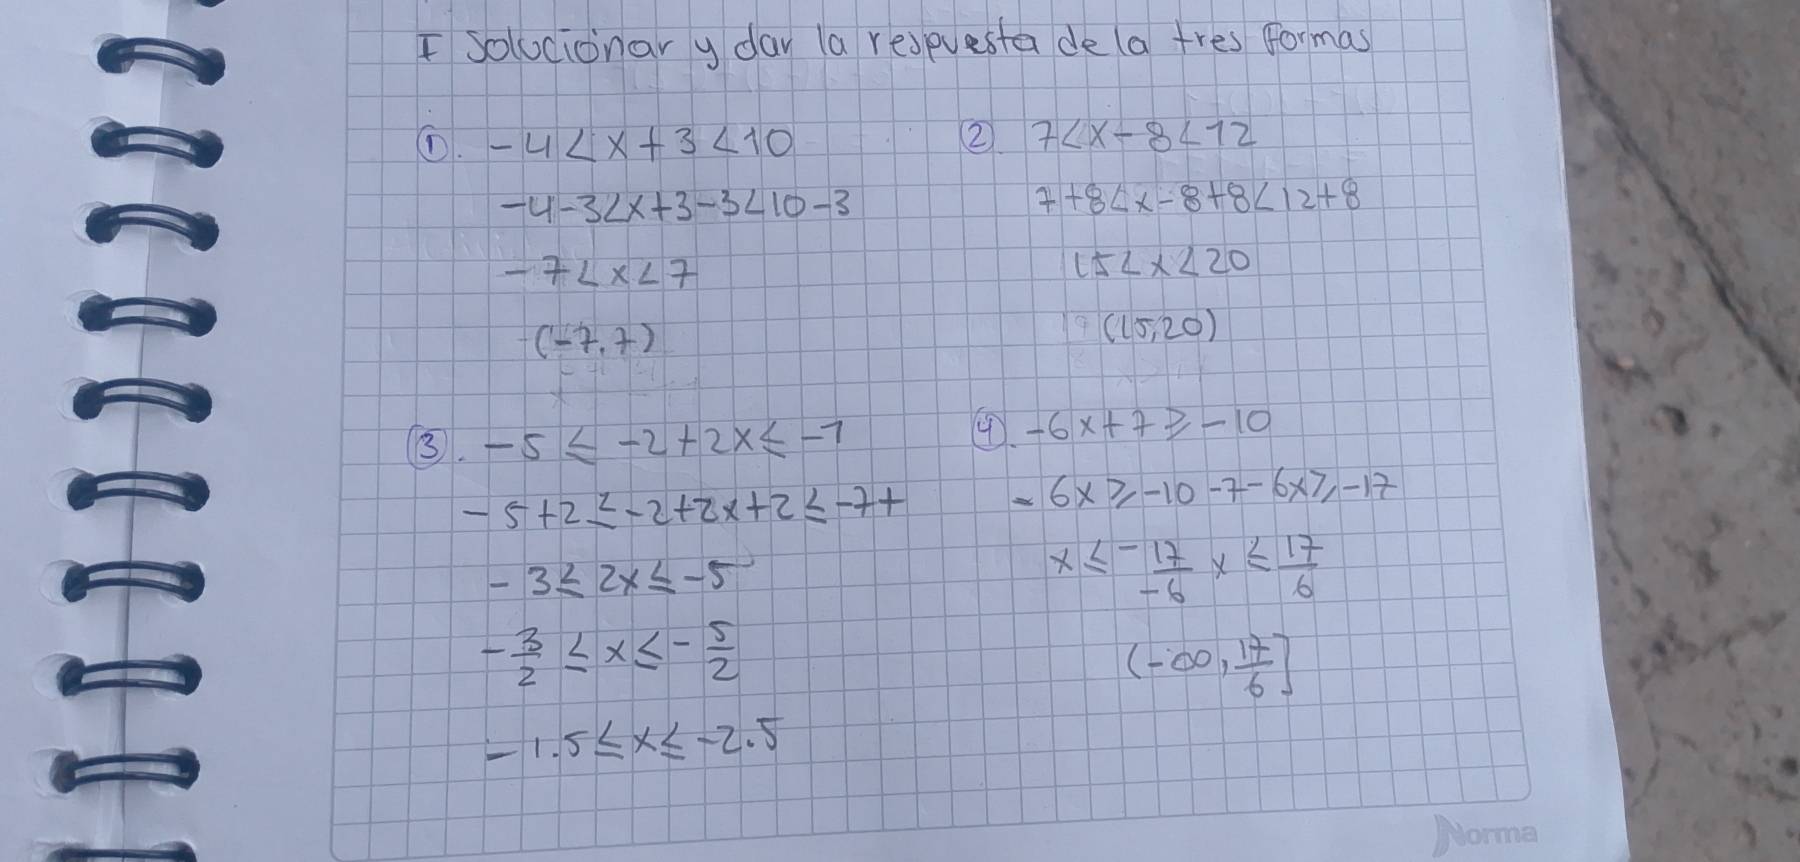 I Solucionar y dar la respuesta de la tres formas
①. -4 < x + 3 < 10
-4-3 < x+3-3 < 10-3
-7 < x < 7
(-7,7)
② 7 < x - 8 < 12
7+8 < x-8+8 < 12+8
15 < x < 20
(15,20)
③. -5 ≤ -2 + 2x ≤ -7
-5+2 ≤ -2+2x+2 ≤ -7+
-3 ≤ 2x ≤ -5
-3/2 ≤ x ≤ -5/2
-1.5 ≤ x ≤ -2.5
④. -6x + 7 ≥ -10
-6x ≥ -10 -7 -6x ≥ -17
x ≤ -17/-6 x ≤ 17/6
(-∞, 17/6]
Norma